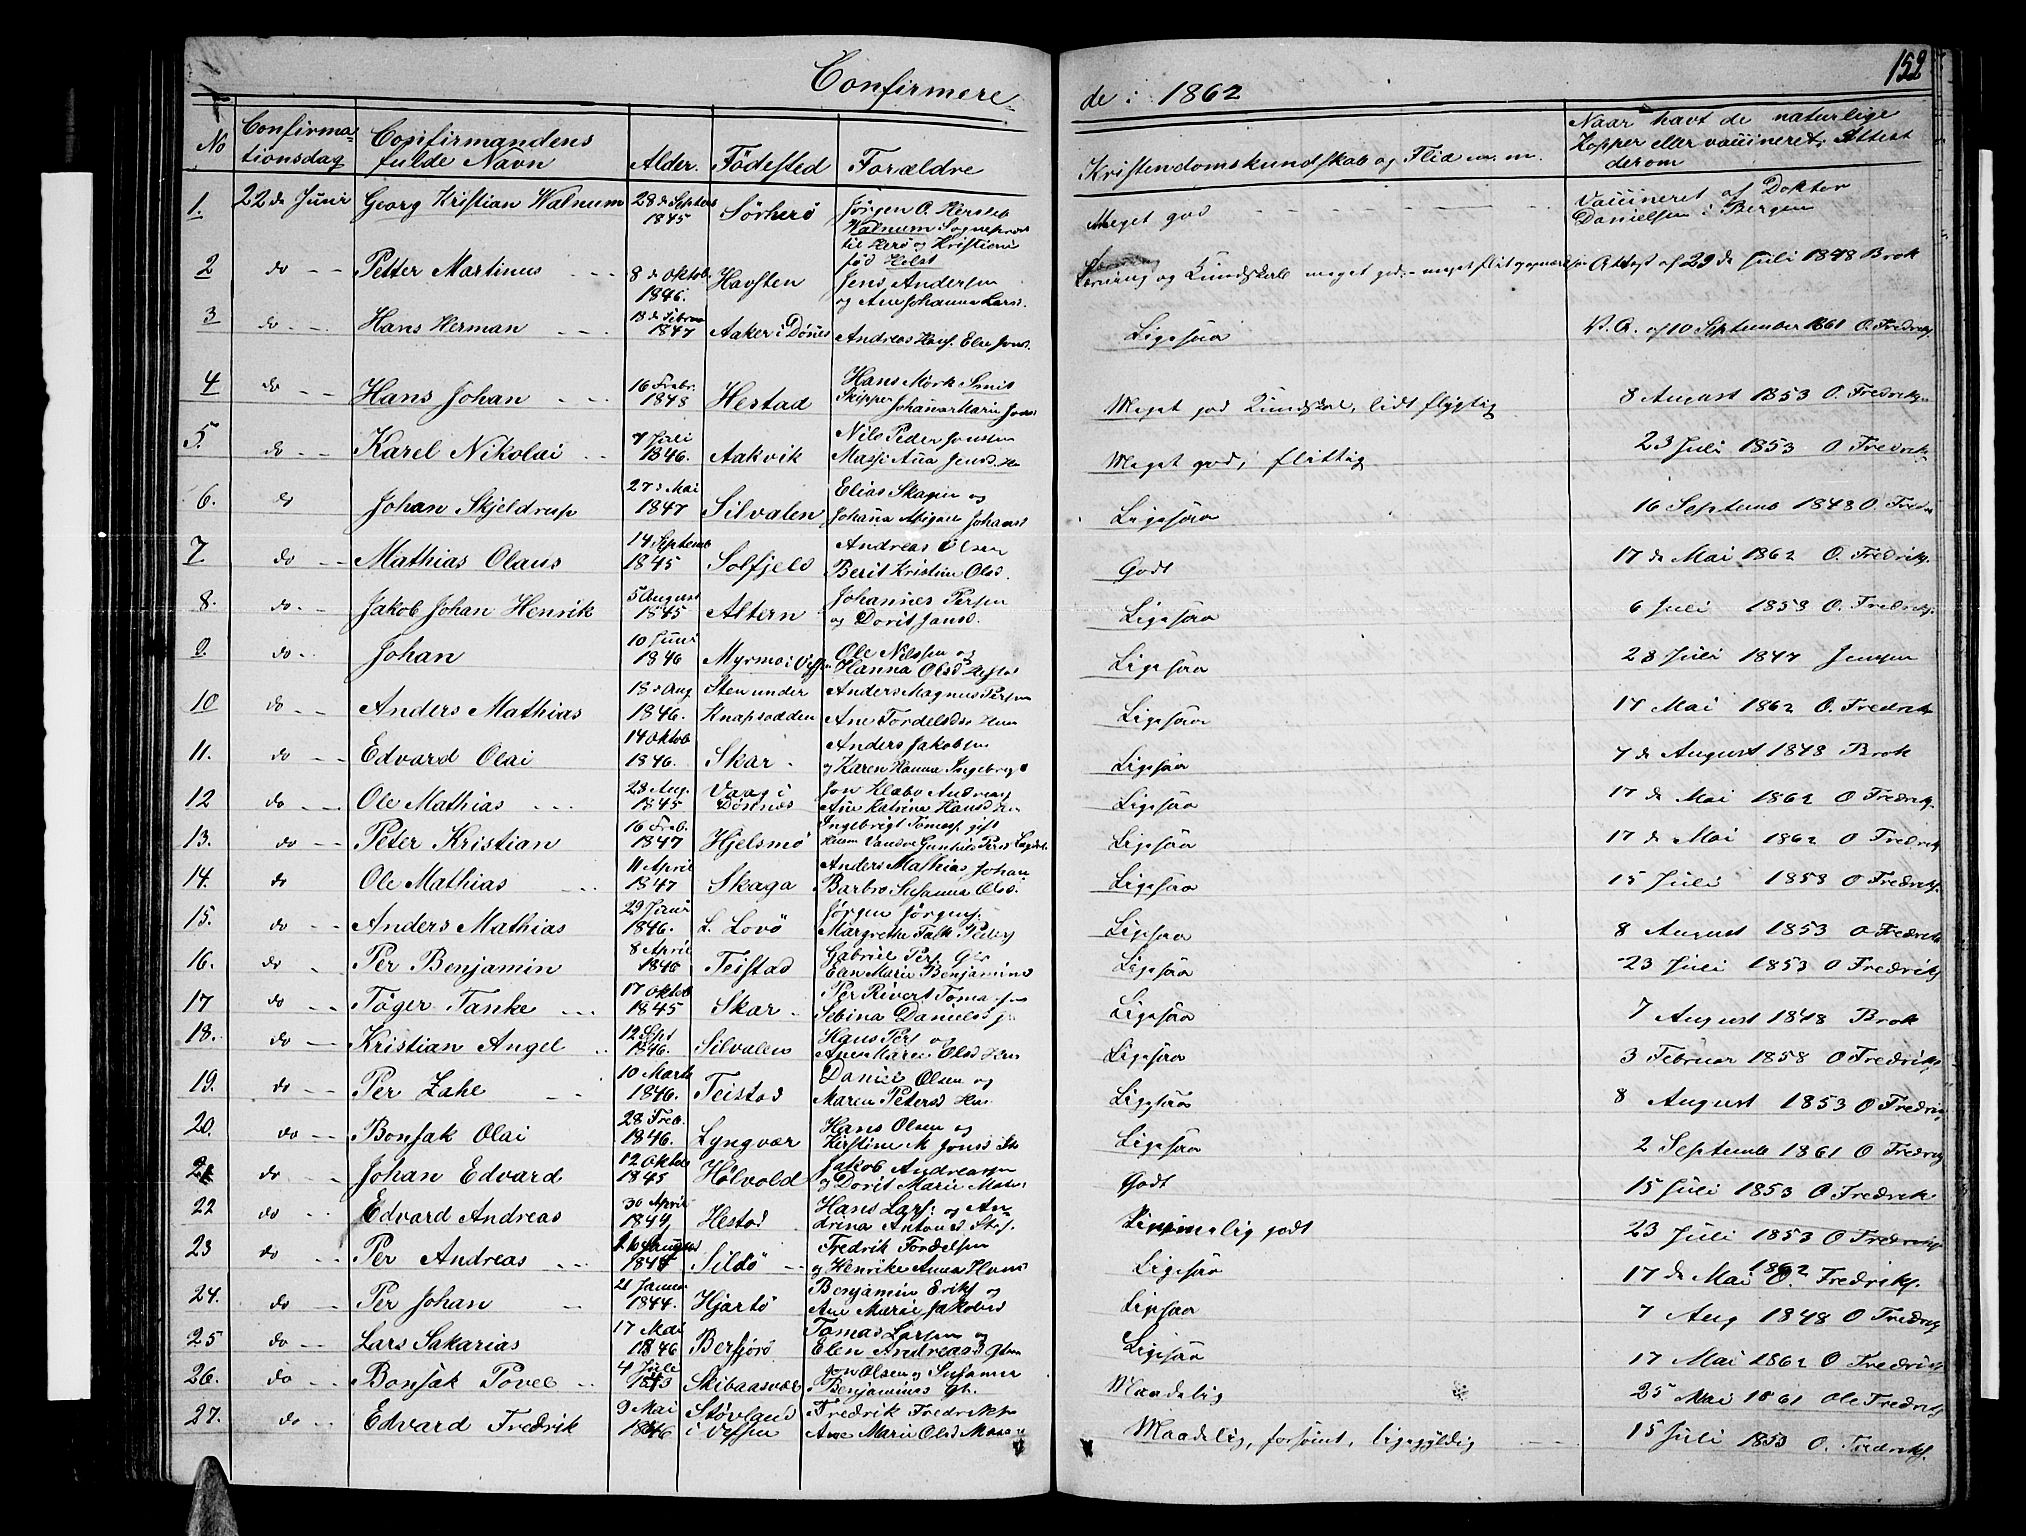 Confirmere
de i 1862
152
No Confirma= tionsdag Confirmandens fulde Navn Alder. Födested Forældre Kristendomskundskab og Flid m. m. Naar havt de naturlige Kopper eller vaccineret, Attest derom
1. 22 de Juni Georg Kristian Walnum 28 de Septbr 1845 Sörherö Jörgen O. Walnum Sogneprest til Herö og Meget god Vaccineret af Doktor Danielsen i Bergen
2 do Petter Martinus 8 de Oktob 1846. Havsten Jens Andersen og Ane Johanna Lars. Læsning og Kundskab meget god Attest af 29 de Juli 1848 Brok
3 do Hans Herman 1847 Aaker i Dönnes Andreas Hans. Elen Jens. Ligesaa V. A. af 10 September 1861 O. Fredriks.
4 do Hans Johan 16 Febr. 1848 Hestad Hans Mörk Smit Skipper Johana Marie Meget god Kundskab, lidt flygtig 8 August 1853 O. Fredriks.
5. do Karel Nikolai 7 Juli 1846. Aakvik Nils Peder Jensen Masji Ana Jensd. Meget god, flittig 23 Juli 1853 O Fredriks
6. do Johan Skjeldrup 27 Mai 1847 Silvalen Elias Skagen og Johana Abigael Johansd Ligesaa 16 Septemb 1848 O. Fredr
7 do Mathias Olaus 14 Septemb 1845 Solfjeld Andreas Olsen Berit Kristine Olsd. Godt 17 de Mai 1862 O. Fredriks.
8. do Jakob Johan Henrik 5 August 1845 Altern Johannes Persen og Dorit Jansd. Ligesaa 6 Juli 1858 O. Fredriks.
9. do Johan 10 Juni 1846 Myrmo i Vefsn Ole Nilssen og Hanna Olsd Ligesaa 28 Juli 1847 Jensen
10 do Anders Mathias 18 Aug 1846. Sten under Knapsodden Anders Magnus Persen Ane Tordelsd Ligesaa 17 Mai 1862 O. Fredrik
11. do Edvard Olai 14 Oktob 1846. Skar Anders Jakobsen og Karen Hanna Ingebrigs Ligesaa 7 de August 1848 Brok
12 do Ole Mathias 28 Aug. 1845 Vaag i Dönnes Jon Andreas Ane Katrina Hansd Ligesaa 17 de Mai 1862 O Fredrik.
13. do Peter Kristian 16 Feb. 1847 Hjelsmö Ingebrigt Tomass. gift Gunhild Persd Ligesaa 17 de Mai 1862 O Fredrik
14. do Ole Mathias 11 April 1847 Skaga Anders Mathias Johan Barbro Susanna Olsd. Ligesaa 15 Juli 1858 O Fredriks.
15. do Anders Mathias 29 Juni 1846. L. Lovö Jörgen Jörgens. Margrethe Falk Peders Ligesaa 8 August 1853 O Fredrik
16. do Per Benjamin 8 April 1846 Teistad Gabriel Pers. Elen Marie Benjamins Ligesaa 23 Juli 1853 O Fredriks
17 do Töger Tanke 17 Oktob 1845 Skar Per Rivert Tomassen Sebina Danielsd Ligesaa 7 August 1848 Brok
18. do Kristian Angel 12 Sept 1846. Silvalen Hans Pers og Ane Maren Olsd Ligesaa 3 Februar 1858 O Fredriks
19. do Per Zahe 10 Marts 1846. Teistad Daniel Olsen og Maren Petersd Ligesaa 8 August 1853 O Fredriks
20. do Bonsak Olai 28 Feb. 1846. Lyngvær Hans Olsen og Kirstine M Jonsd Ligesaa 2 Septemb 1861 O Fredriks
21 do Johan Edvard 12 Oktob 1845 Holvold Jakob Andreassen og Dorit Marie Godt 15 Juli 1853 O Fredrik
22 do Edvard Andreas 30 April 1844 Hestad Hans Lars. og Andrina Antonsd Temmelig godt 23 Juli 1853 O Fredriks
23 do Per Andreas Sildö Fredrik Tordelsen og Henrike Anna Hans Ligesaa 17 de Mai 1862 O. Fredriks.
24. do Per Johan 21 Januar 1844. Hjartö Benjamin Eriks og Ane Marie Jakobsd Ligesaa 7 Aug 1848 O Fredriks
25 do Lars Sakarias 17 Mai 1846 Berfjord Tomas Larsen og Elen Andreasd Ligesaa 17 Mai 1862 O Fredriks
26. do Bonsak Povel 4 Jul Skibaasvær Jon Olsen og Susanna Benjamins Maadelig 25 Mai 1861 Ole Fredriks
27. do Edvard Fredrik 9 Mai 1846 Stövland i Vefsen Fredrik Fredriks Ane Marie Olsd Maadelig, forsömt, ligegyldig 15 Juli 1853 O. Fredriks.